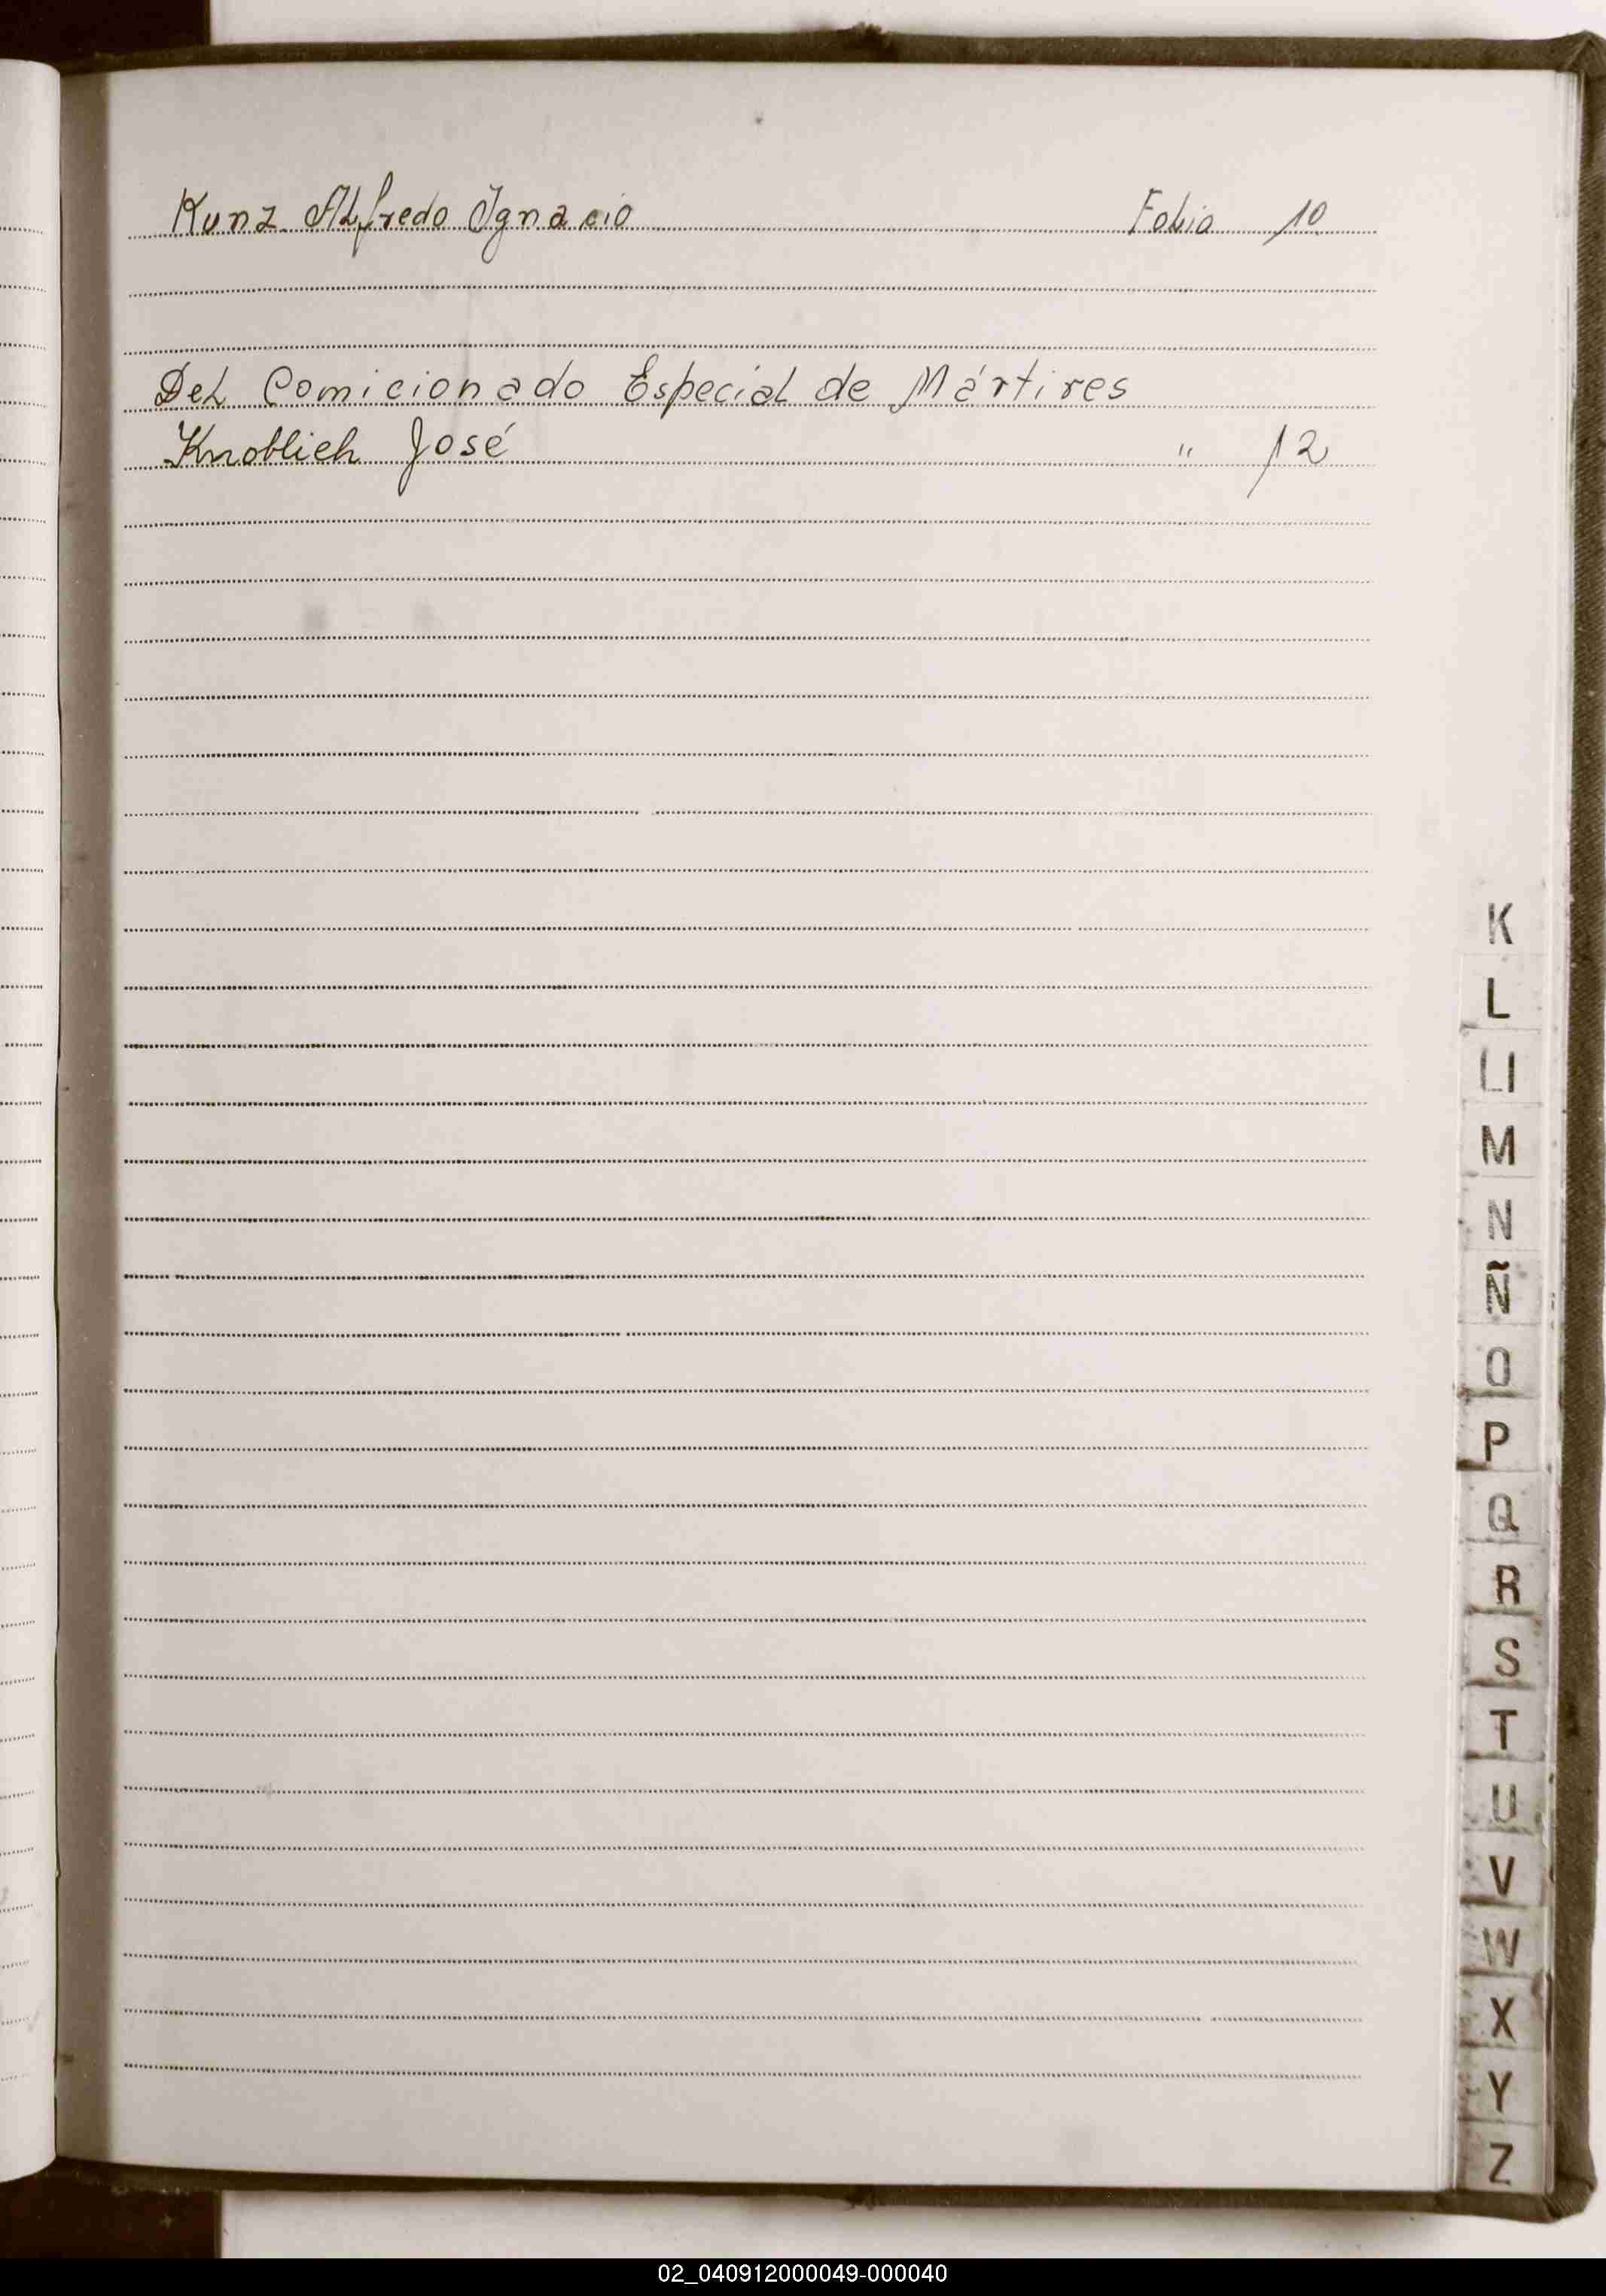 Kunz Alfredo Ignacio Folio 10
Del Comicionado Especial de Mártires
Knoblich José " 12
K
L
Ll
M
N
Ñ
O
P
Q
R
S
T
U
V
W
X
Y
Z
02_040912000049-000040